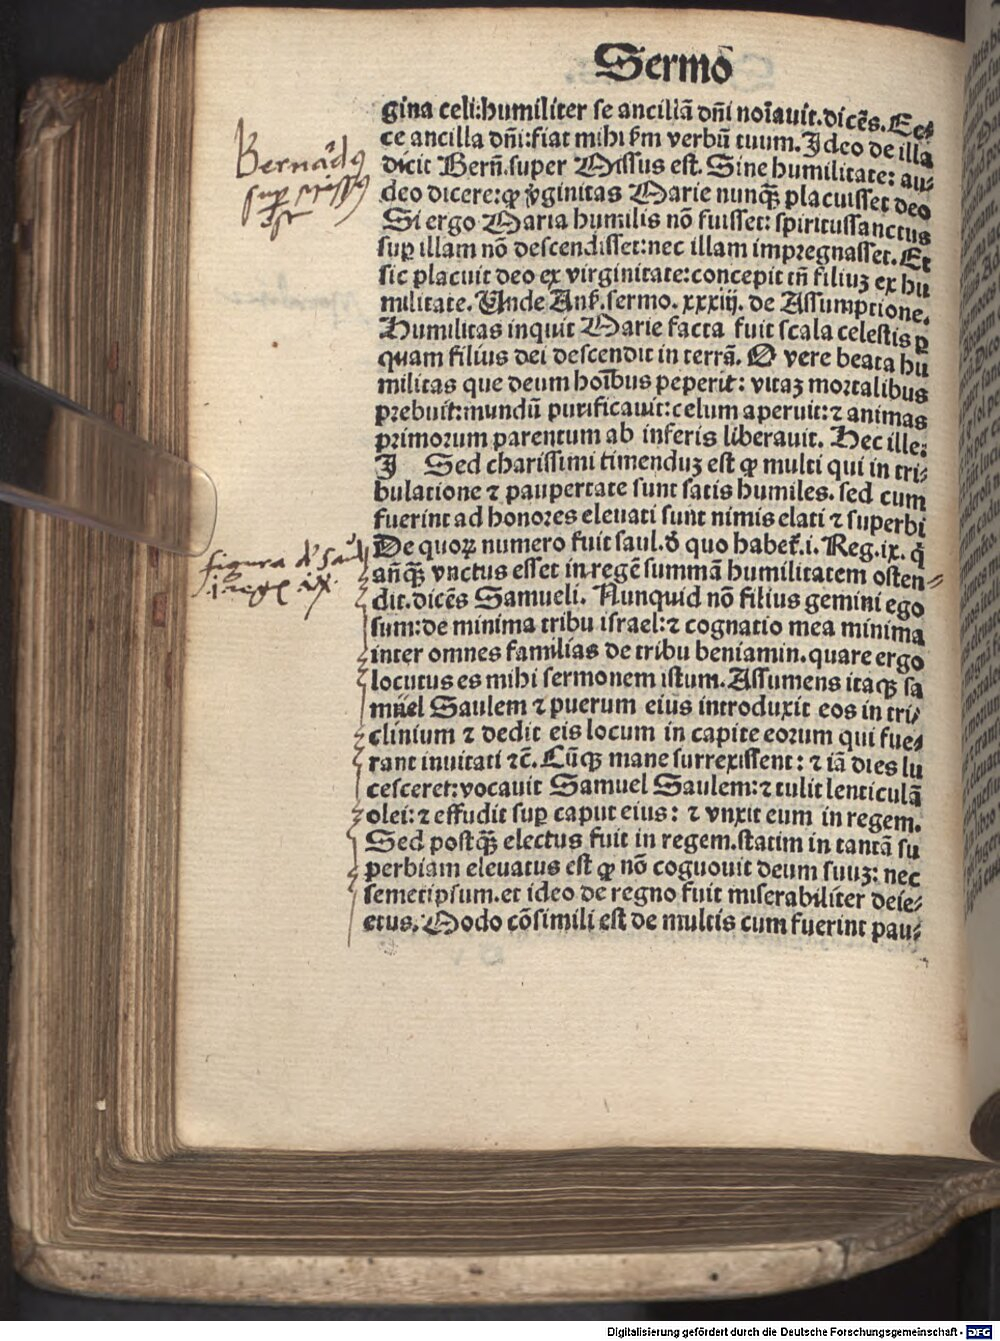 Sermo
gina celi:humiliter se ancillā dñi noīauit.dicēs.Ec⸗
ce ancilla dñi:fiat mihi ẜm verbū tuum.Ideo de illa
dicit Berñ.super Missus est. Sine humilitate: au⸗
deo dicere:ꝙ v̓ginitas Marie nunqȝ̄ placuisset deo
Si ergo Maria humilis nō fuisset: spiritussanctus
suꝑ illam nō descendisset:nec illam impregnasset.Et
sic placuit deo ex virginitate:concepit tñ filiuȝ ex hu
militate. Unde Anẜ.sermo. xxxiij. de Assumptione.
Humilitas inquit Marie facta fuit scala celestis ꝑ
quam filius dei descendit in terrā. O vere beata hu
militas que deum hoībus peperit: vitaȝ mortalibus
prebuit:mundū purificauit:celum aperuit:⁊ animas
primorum parentum ab inferis liberauit. Hec ille:
I Sed charissimi timenduȝ est ꝙ multi qui in tri⸗
bulatione ⁊ paupertate sunt satis humiles. sed cum
fuerint ad honores eleuati sunt nimis elati ⁊ superbi
De quoꝝ numero fuit saul. d̓ quo habet᷑.i. Reg.ix. ꝙ̄
añqȝ̄ vnctus esset in regē summā humilitatem osten⸗
dit.dicēs Samueli. Nunquid nō filius gemini ego
sum:de minima tribu israel:⁊ cognatio mea minima
inter omnes familias de tribu beniamin.quare ergo
locutus es mihi sermonem istum. Assumens itaqȝ sa
muel Saulem ⁊ puerum eius introduxit eos in tri⸗
clinium ⁊ dedit eis locum in capite eorum qui fue⸗
rant inuitati ⁊c̄. Cūqȝ mane surrexissent: ⁊ iā dies lu
cesceret:vocauit Samuel Saulem:⁊ tulit lenticulā
olei:⁊ effudit suꝑ caput eius: ⁊ vnxit eum in regem.
Sed postqȝ̄ electus fuit in regem.statim in tantā su
perbiam eleuatus est ꝙ nō coguouit deum suuȝ: nec
semetipsum.et ideo de regno fuit miserabiliter deie⸗
ctus. Modo cōsimili est de multis cum fuerint pau⸗
Bernādꝰ
suꝑ missꝰ
est
figura d' Saul
i regꝝ ix.
Digitalisierung gefördert durch die Deutsche Forschungsgemeinschaft - DFG